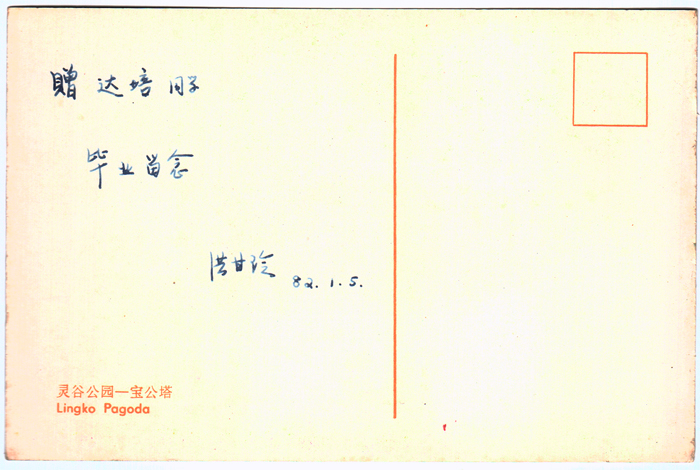 贈 达培 同学
毕业留念
洪甘玲 82.1.5.
灵谷公园—宝公塔
Lingko Pagoda